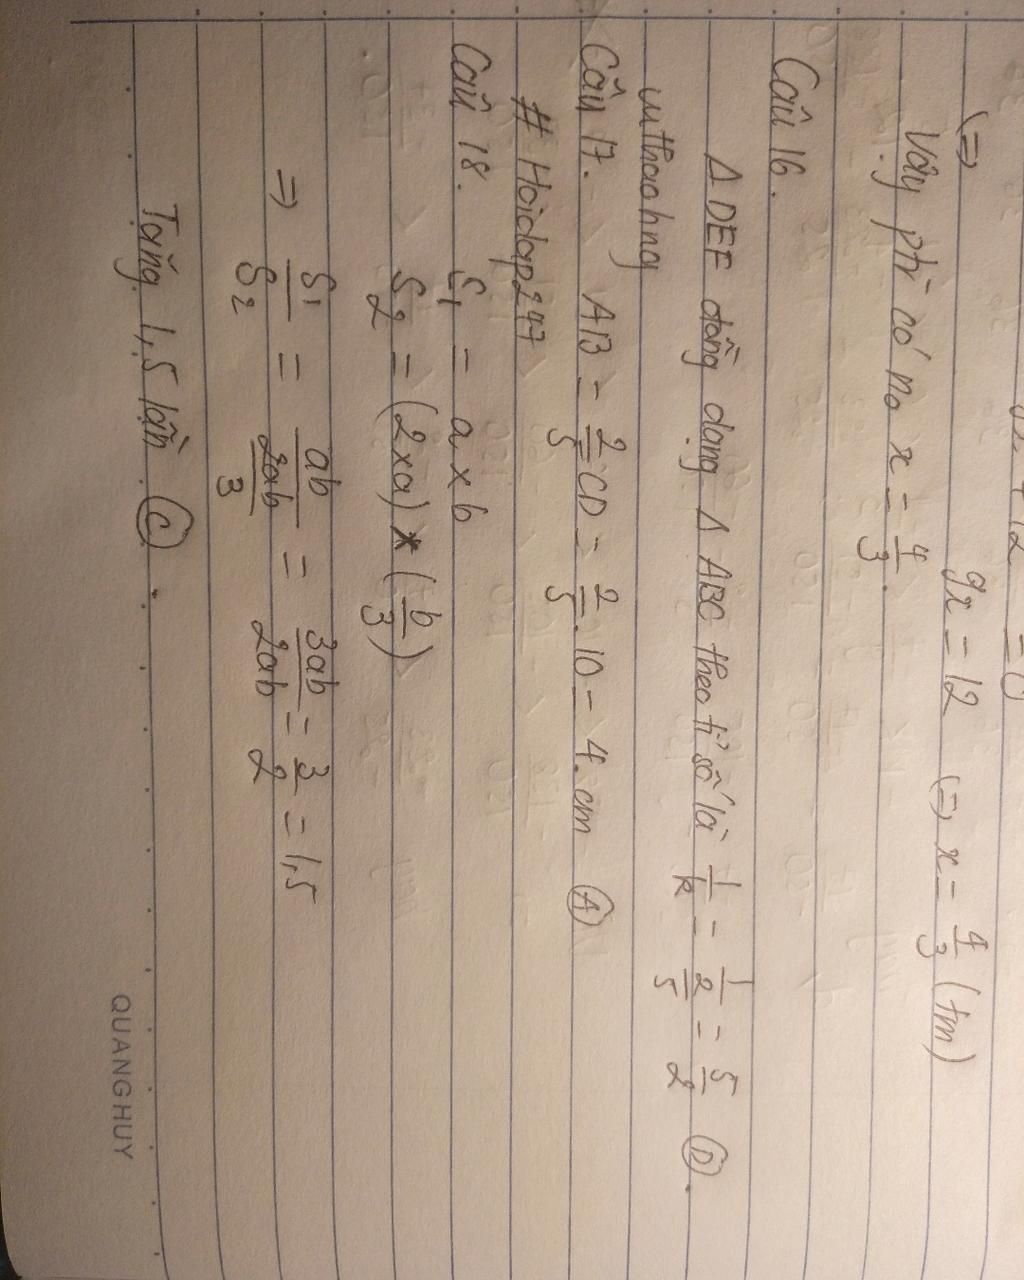 9x = 12 (=) x = 4/3 (tm)
(=)
Vậy ptr có no x = 4/3.
Câu 16.
Δ DEF đồng dạng Δ ABC theo tỉ số là 1/k = 1/(2/5) = 5/2 (D).
uthaohng
Câu 17. AB = 2/5 CD = 2/5. 10 = 4. cm (A)
# Hoidap247
Câu 18. S1 = a x b
S2 = (2xa) x (b/3)
=> S1/S2 = ab/(2ab/3) = 3ab/2ab = 3/2 = 1,5
Tăng 1,5 lần (C).
QUANGHUY